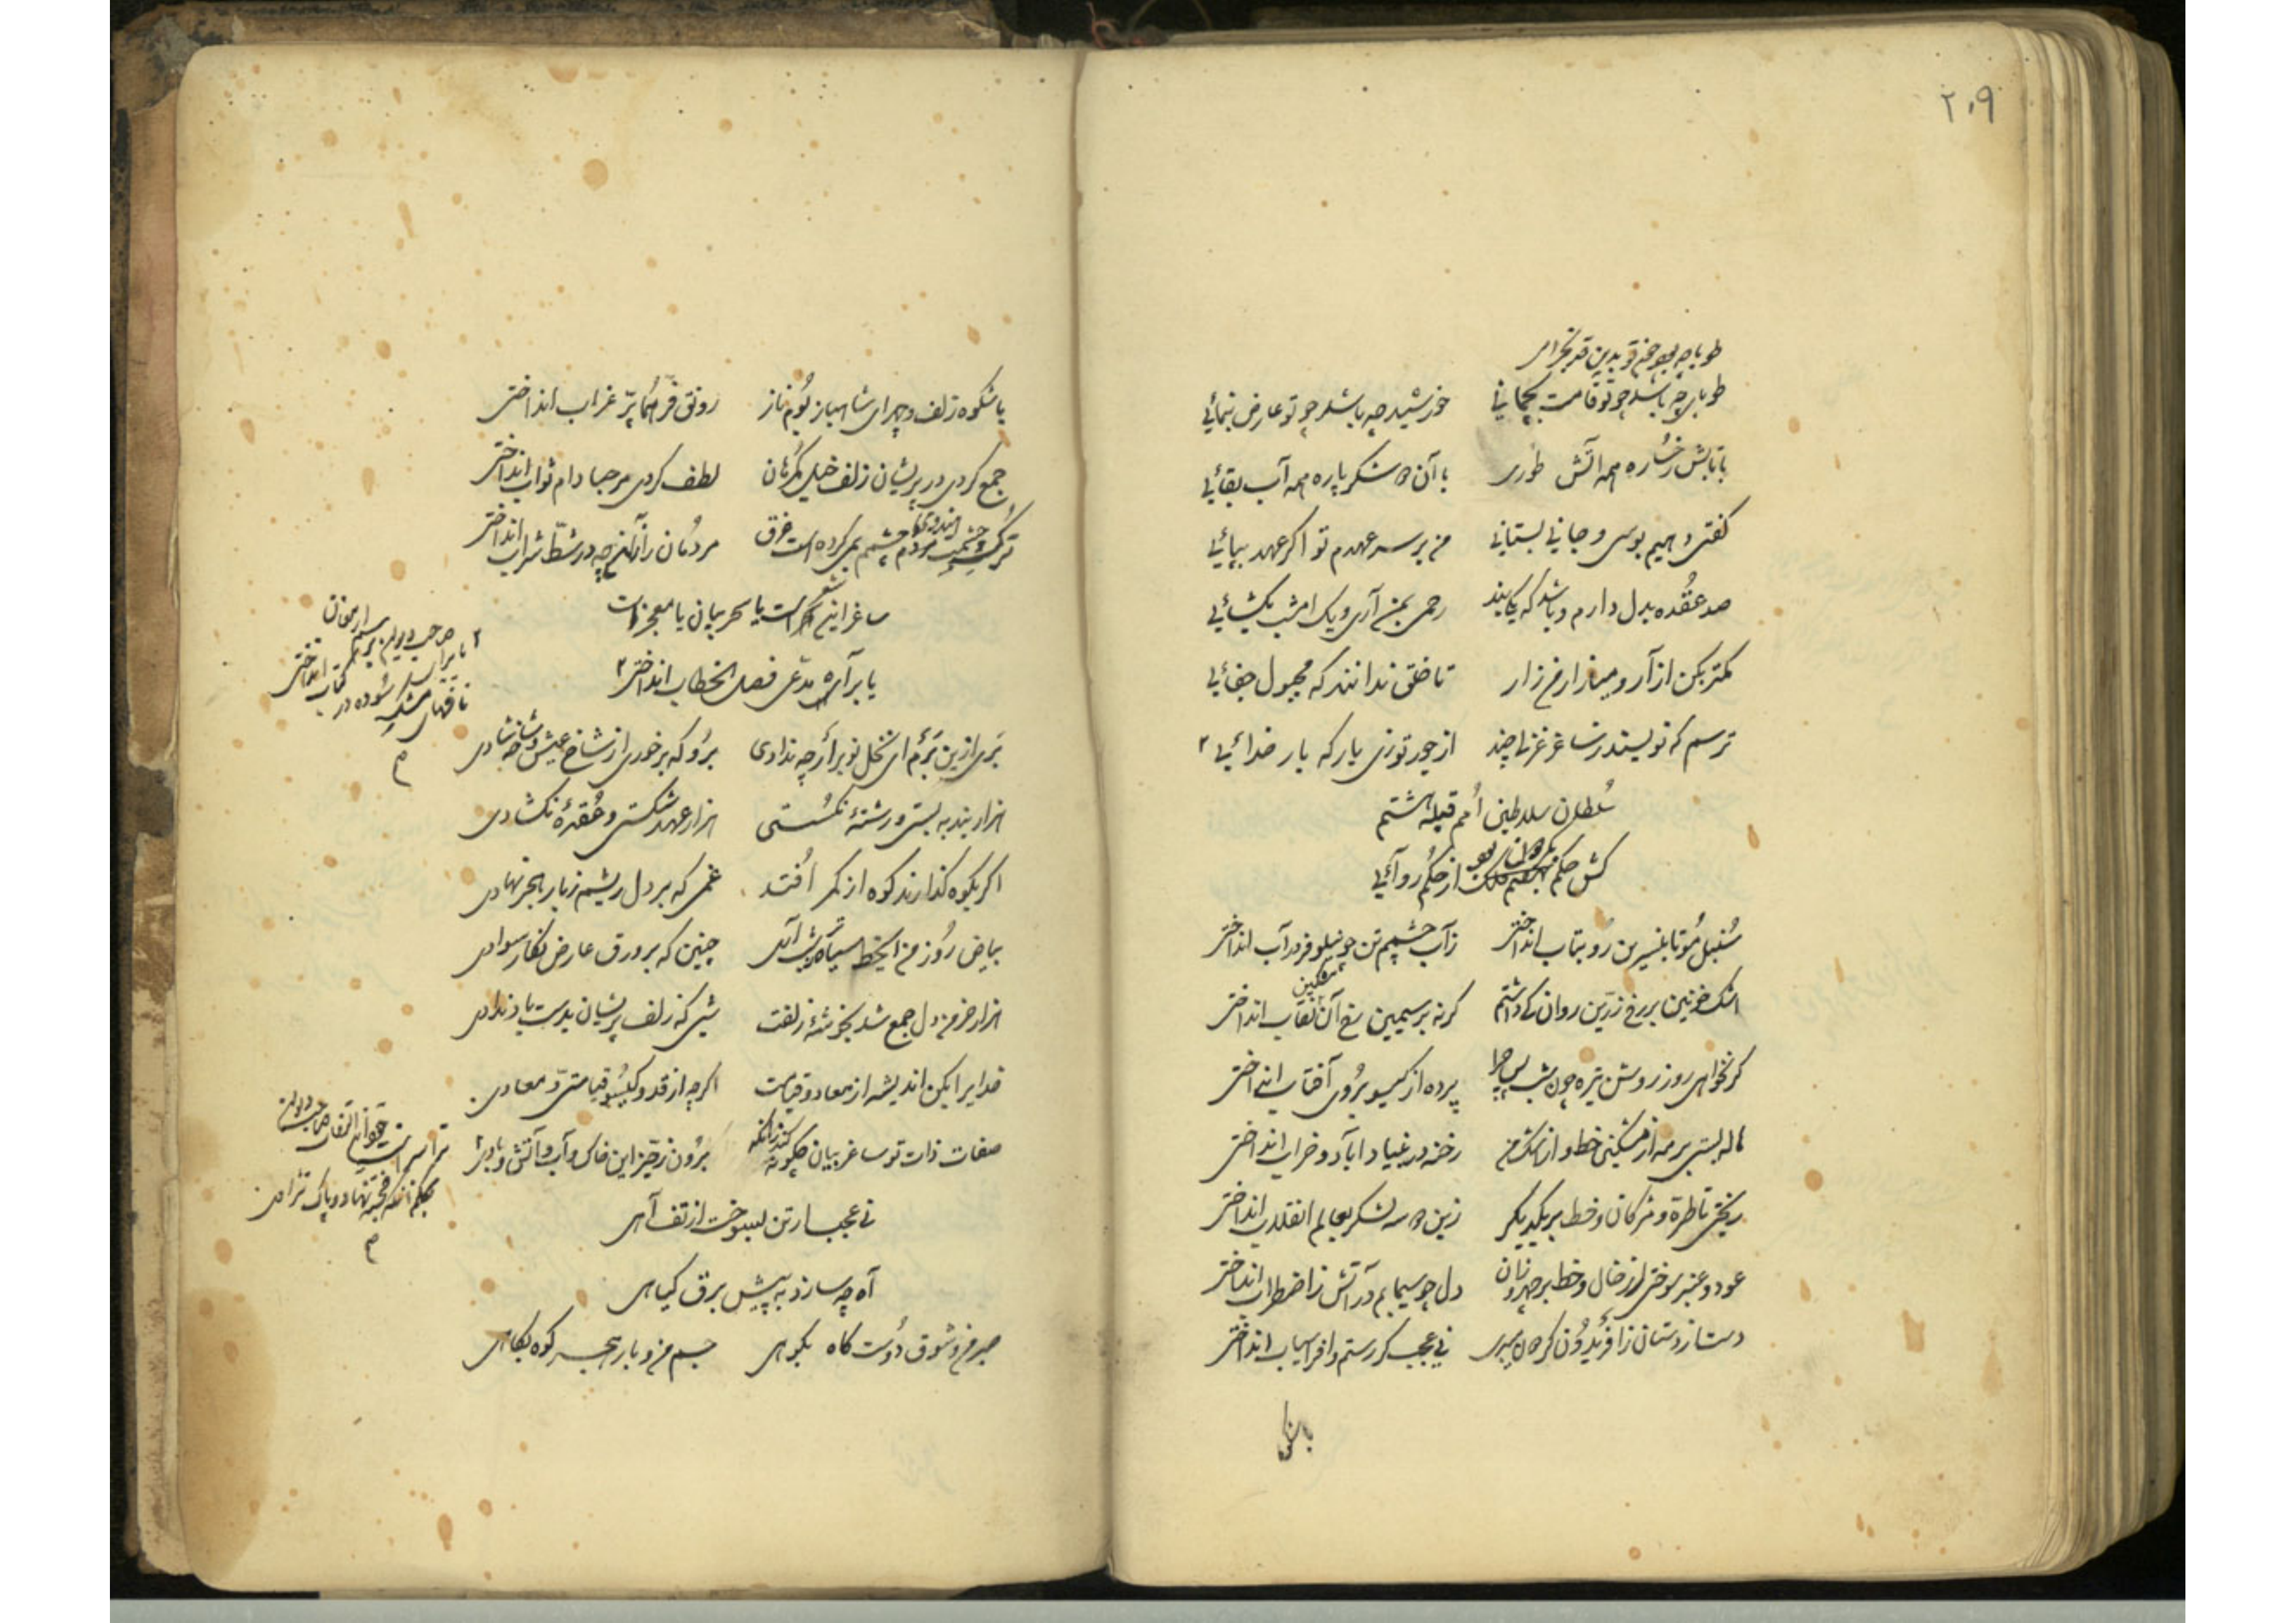 ۲۰۹
طوبا چه بود چون تو بدین قد بخرامی
طوبای چه باشد چو تو قامت بچمانی خورشید چه باشد چو تو عارض بنمائی
با تابش رخساره همه آتش طوری با آن دو شکر پاره همه آب بقائی
گفتی دهیم بوسی و جانی بستانی من بر سر عهدم تو اگر عهد بپائی
صد عقده بدل دارم و باشد که یکایند رحمی بمن آری و یک امشب بگشائی
کمتر بکن آزار و میازار من زار تا خلق ندانند که مجبول جفائی
ترسم که نویسند ز ساغر غزلی چند از جور تو زی بار که بار خدائی ۲
سلطان سلاطین امم قبله هشتم
کش حکم از حکم روائی
سنبل مو تا بنسرین رو بتاب انداختی ز آب چشمم تن چو نیلوفر در آب انداختی
مشکین
اشک خونین بر رخ زرین روان کی داشتم گر نه بر سیمین رخ آن نقاب انداختی
گر نخواهی روز روشن تیره چون شب پس چرا پرده از گیسو بروی آفتاب انداختی
هاله بستی بر مه از مشکین خط و از اشک من رخنه در بنیاد آباد و خراب انداختی
ریختی تا طره و مژگان و خط بر یکدیگر زین سه لشکر بعالم انقلاب انداختی
عود و عنبر سوختی از خال و خط بر چهر و زان دل چو سیمابم در آتش ز اضطراب انداختی
دستان ز آفریدون نی عجب گر رستم و افراسیاب انداختی
با شکوه زلف و چهر ای شاهباز بوم ناز رونق فر هما پر غراب انداختی
جمع کردی در پریشان زلف خیل گمرهان لطف کردی مرحبا دام ثواب انداختی
ترک چشمت مردم چشمم بمی کرده است غرق مردمان را ز آنچه در شط شراب انداختی
شعر
ساغر این است یا سحر بیان یا معجز است
یا برای مدعی فصل الخطاب انداختی ۲
۲ یا برای صاحب دیوان برسم ارمغان
نافهای مشک سوده در کتاب انداختی
م
بری ازین برم ای نخل نوبر ار چه ندادی برو که برخوری از شاخ عیش و شاخه شادی
هزار بند به بستی و رشتهٔ نگسستی هزار عهد شکستی و عقدهٔ نگشادی
اگر بکوه گذارند کوه از کمر افتد غمی که بر دل ریشم ز بار هجر نهادی
بیاض روز من از خط سیاه شب آمد چنین که بر ورق عارض نگار سوادی
هزار خرمن دل جمع شد بخوشهٔ زلفت شبی که زلف پریشان بدست باد ندادی
خدایرا بکن اندیشه از معاد و قیامت اگر چه از قد و گیسو قیامتی و معادی
صفات ذات تو ساغر بیان چگونه کند زانکه برون ز حیز این خاک و آب و آتش و بادی ۲
ترا سزاست صاحب دیوان
بحکم آنکه خجسته نهاد و پاک نژادی
م
نی عجب ار تن بسوخت از تف آهی
آه چه سازد به پیش برق گیاهی
صبر من و شوق دوست کاه بکوهی جسم من و بار هجر کوه بکاهی